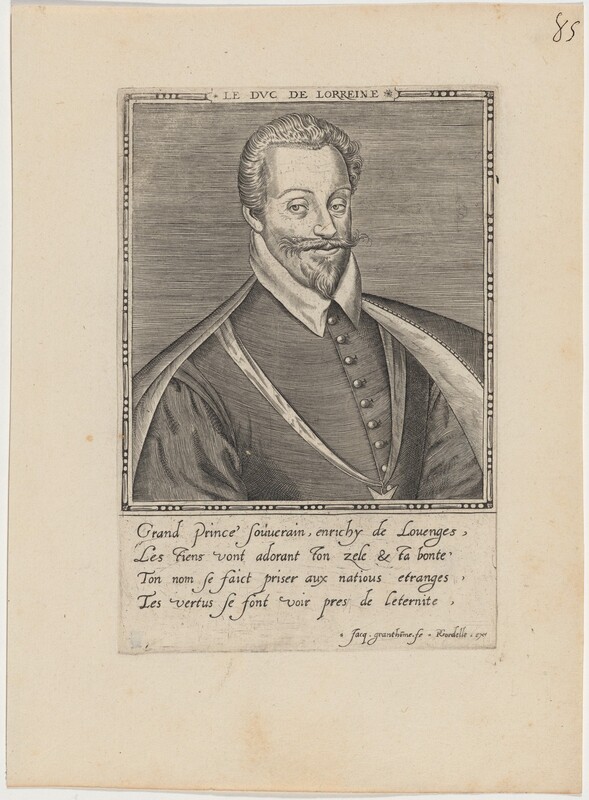 85
* LE DVC DE LORREINE *
Grand Prince souuerain, enrichy de Louenges,
Les tiens vont adorant ton zele & ta bonte
Ton nom se faict priser aux natious etranges,
Tes vertus se font voir pres de leternite,
Jacq. granthôme. fe - Rondelle. ex